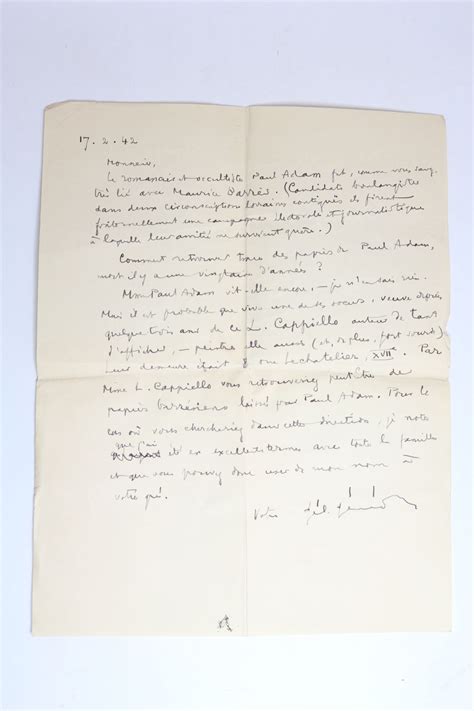 17. 2. 42
Monsieur,
Le romancier et occultiste Paul Adam fut, comme vous savez,
très lié avec Maurice Barrès. (Candidats boulangistes
dans deux circonscriptions lorraines contiguës ils firent
fraternellement une campagne électorale et journalistique
à laquelle leur amitié ne survécut guère.)
Comment retrouver trace des papiers de Paul Adam,
mort il y a une vingtaine d'années ?
Mme Paul Adam vit-elle encore, — je n'en sais rien.
Mais il est probable que vive une de ses soeurs, veuve depuis
quelque trois ans de ce L. Cappiello auteur de tant
d'affiches, — peintre elle aussi (et, de plus, fort sourde)
Leur demeure était 8 rue Lechatelier, XVIIe. Par
Mme L. Cappiello vous retrouveriez peut-être des
papiers barrésiens laissés par Paul Adam. Pour le
cas où vous chercheriez dans cette direction, je note
que j'ai
été en excellents termes avec toute la famille
et que vous pouvez donc user de mon nom à
votre gré.
Votre